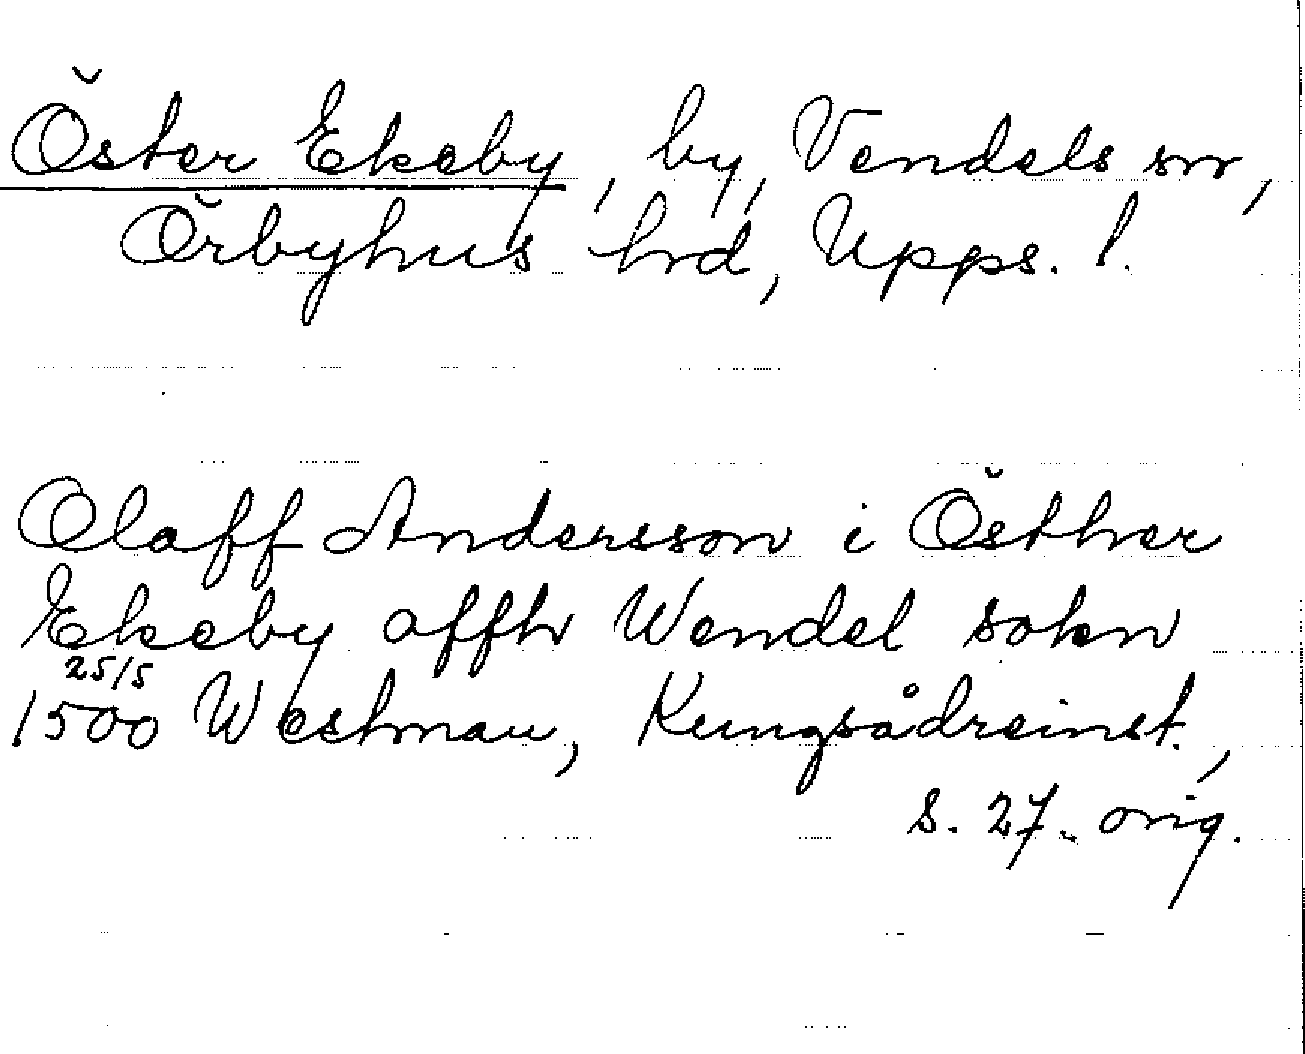 Öster Ekeby, by, Vendels sn,
Örbyhus hrd, Upps. l.
Olaff Andersson i Östher
Ekeby affh Wendel sokn
25/5
1500 Westman, Kungsådreinst.,
s. 27. orig.